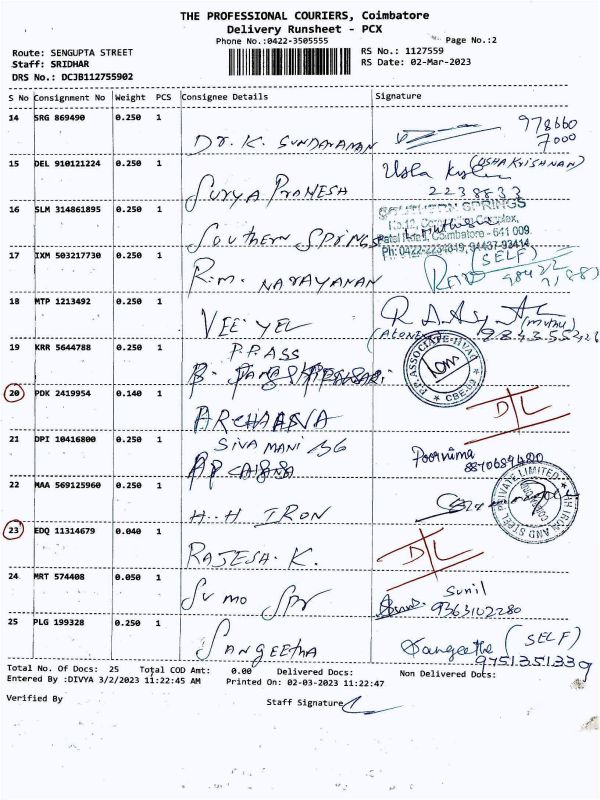 THE PROFESSIONAL COURIERS, Coimbatore
Delivery Runsheet - PCX
Phone No.:0422-3505555 Page No.:2
Route: SENGUPTA STREET RS No.: 1127559
Staff: SRIDHAR RS Date: 02-Mar-2023
DRS No.: DCJB112755902
S No Consignment No Weight PCS Consignee Details Signature
14 SRG 869490 0.250 1 978660
DR. K. SUNDARAMAN 7000
15 DEL 910121224 0.250 1 (USHA KRISHNAN)
SURYA PRANESH 2238833
16 SLM 314861895 0.250 1 SOUTHERN SPRINGS
SOUTHERN SPRINGS Coimbatore - 641 009.
17 IXM 503217730 0.250 1 Ph: 0422-2234319, 94437-93414
R.M. NARAYANAN (SELF)
18 MTP 1213492 0.250 1
VEE YEL
19 KRR 5644788 0.250 1 P.P. ASSOCIATE-HVAC
P.P. ASS CBE-02
20 PDK 2419954 0.140 1 D/L
ARCHANA
21 DPI 10416800 0.250 1
SIVA MANI Poornima
22 MAA 569125960 0.250 1 HH IRON AND STEEL PRIVATE LIMITED
H.H IRON
23 EDQ 11314679 0.040 1 D/L
RAJESH. K.
24 MRT 574408 0.050 1 Sunil
SUMO 9363102280
25 PLG 199328 0.250 1 Sangeetha (SELF)
SANGEETHA 9751351339
Total No. Of Docs: 25 Total COD Amt: 0.00 Delivered Docs: Non Delivered Docs:
Entered By :DIVYA 3/2/2023 11:22:45 AM Printed On: 02-03-2023 11:22:47
Verified By Staff Signature